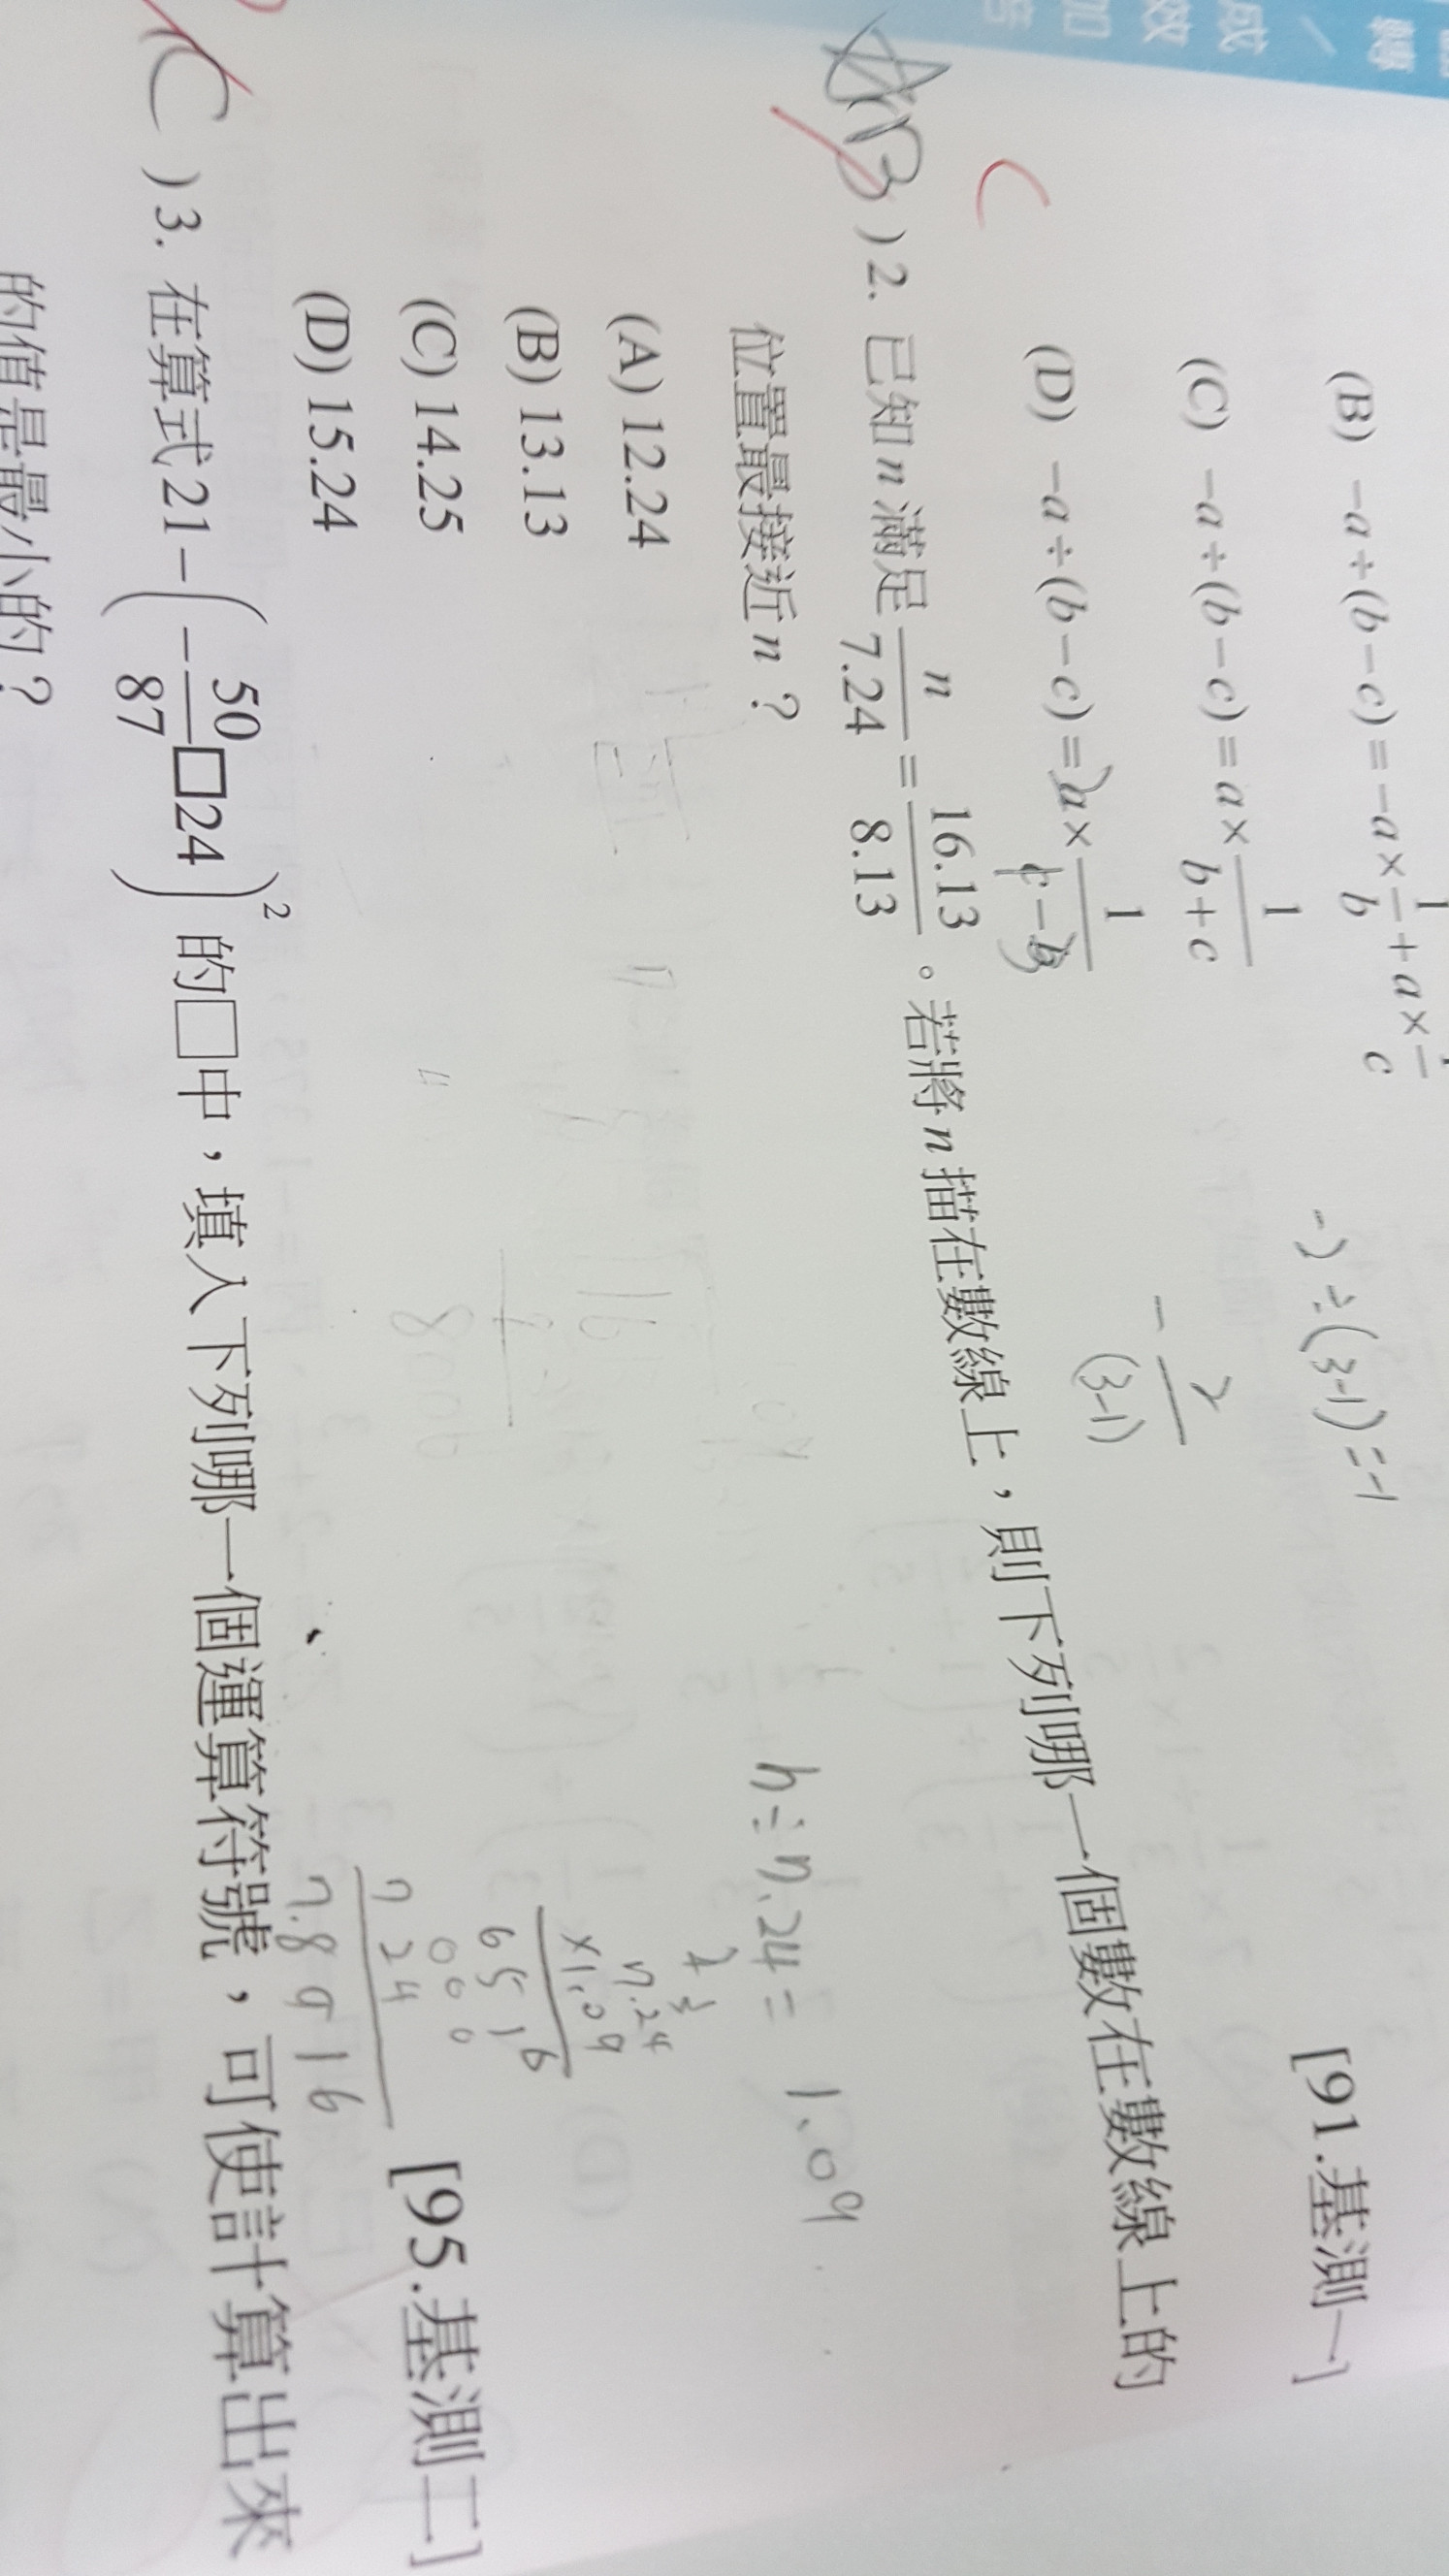 轉
/
成
效
(B) −a÷(b−c)=−a×1/b+a×1/c
−2÷(3−1)=−1
(C) −a÷(b−c)=a×1/(b+c)
−2/(3−1)
(D) −a÷(b−c)=a×1/(c−b)
[91.基測一]
C
)2. 已知n滿足n/7.24=16.13/8.13。若將n描在數線上，則下列哪一個數在數線上的
位置最接近n？
(A) 12.24
(B) 13.13
(C) 14.25
(D) 15.24
[95.基測二]
n÷7.24=1.09
7.24
×1.09
6516
000
724
7.8916
C )3. 在算式21−(−50/87□24)²的□中，填入下列哪一個運算符號，可使計算出來
的值是最小的？